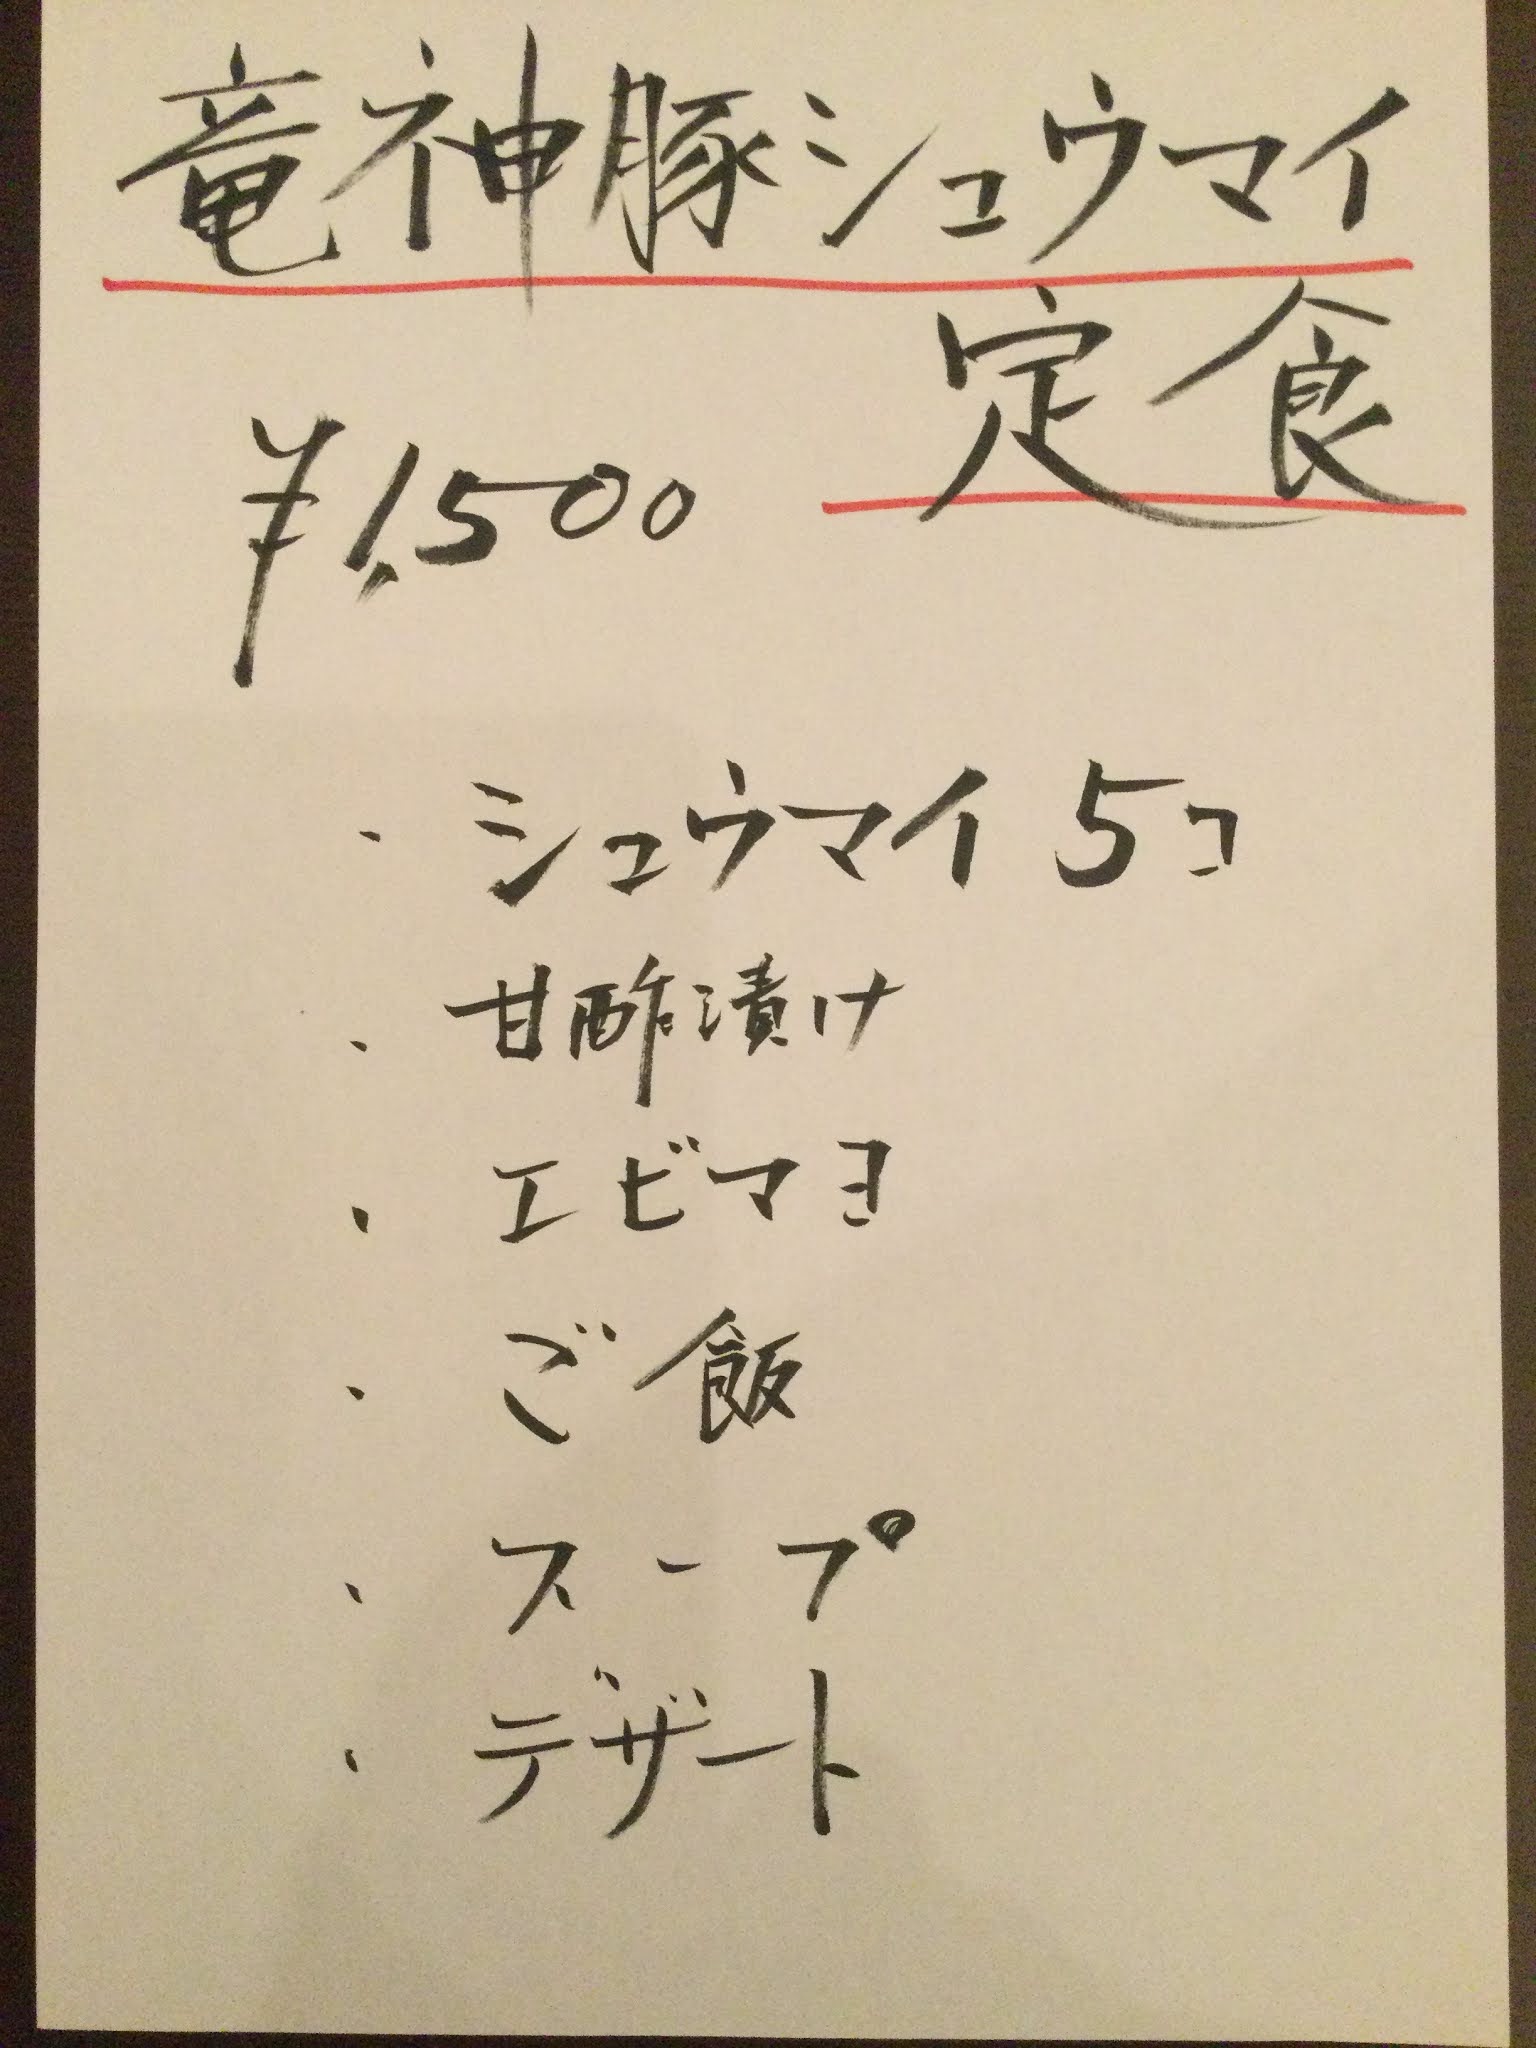 竜神豚シュウマイ
定食
¥1,500
・シュウマイ5コ
・甘酢漬け
・エビマヨ
・ご飯
・スープ
・デザート